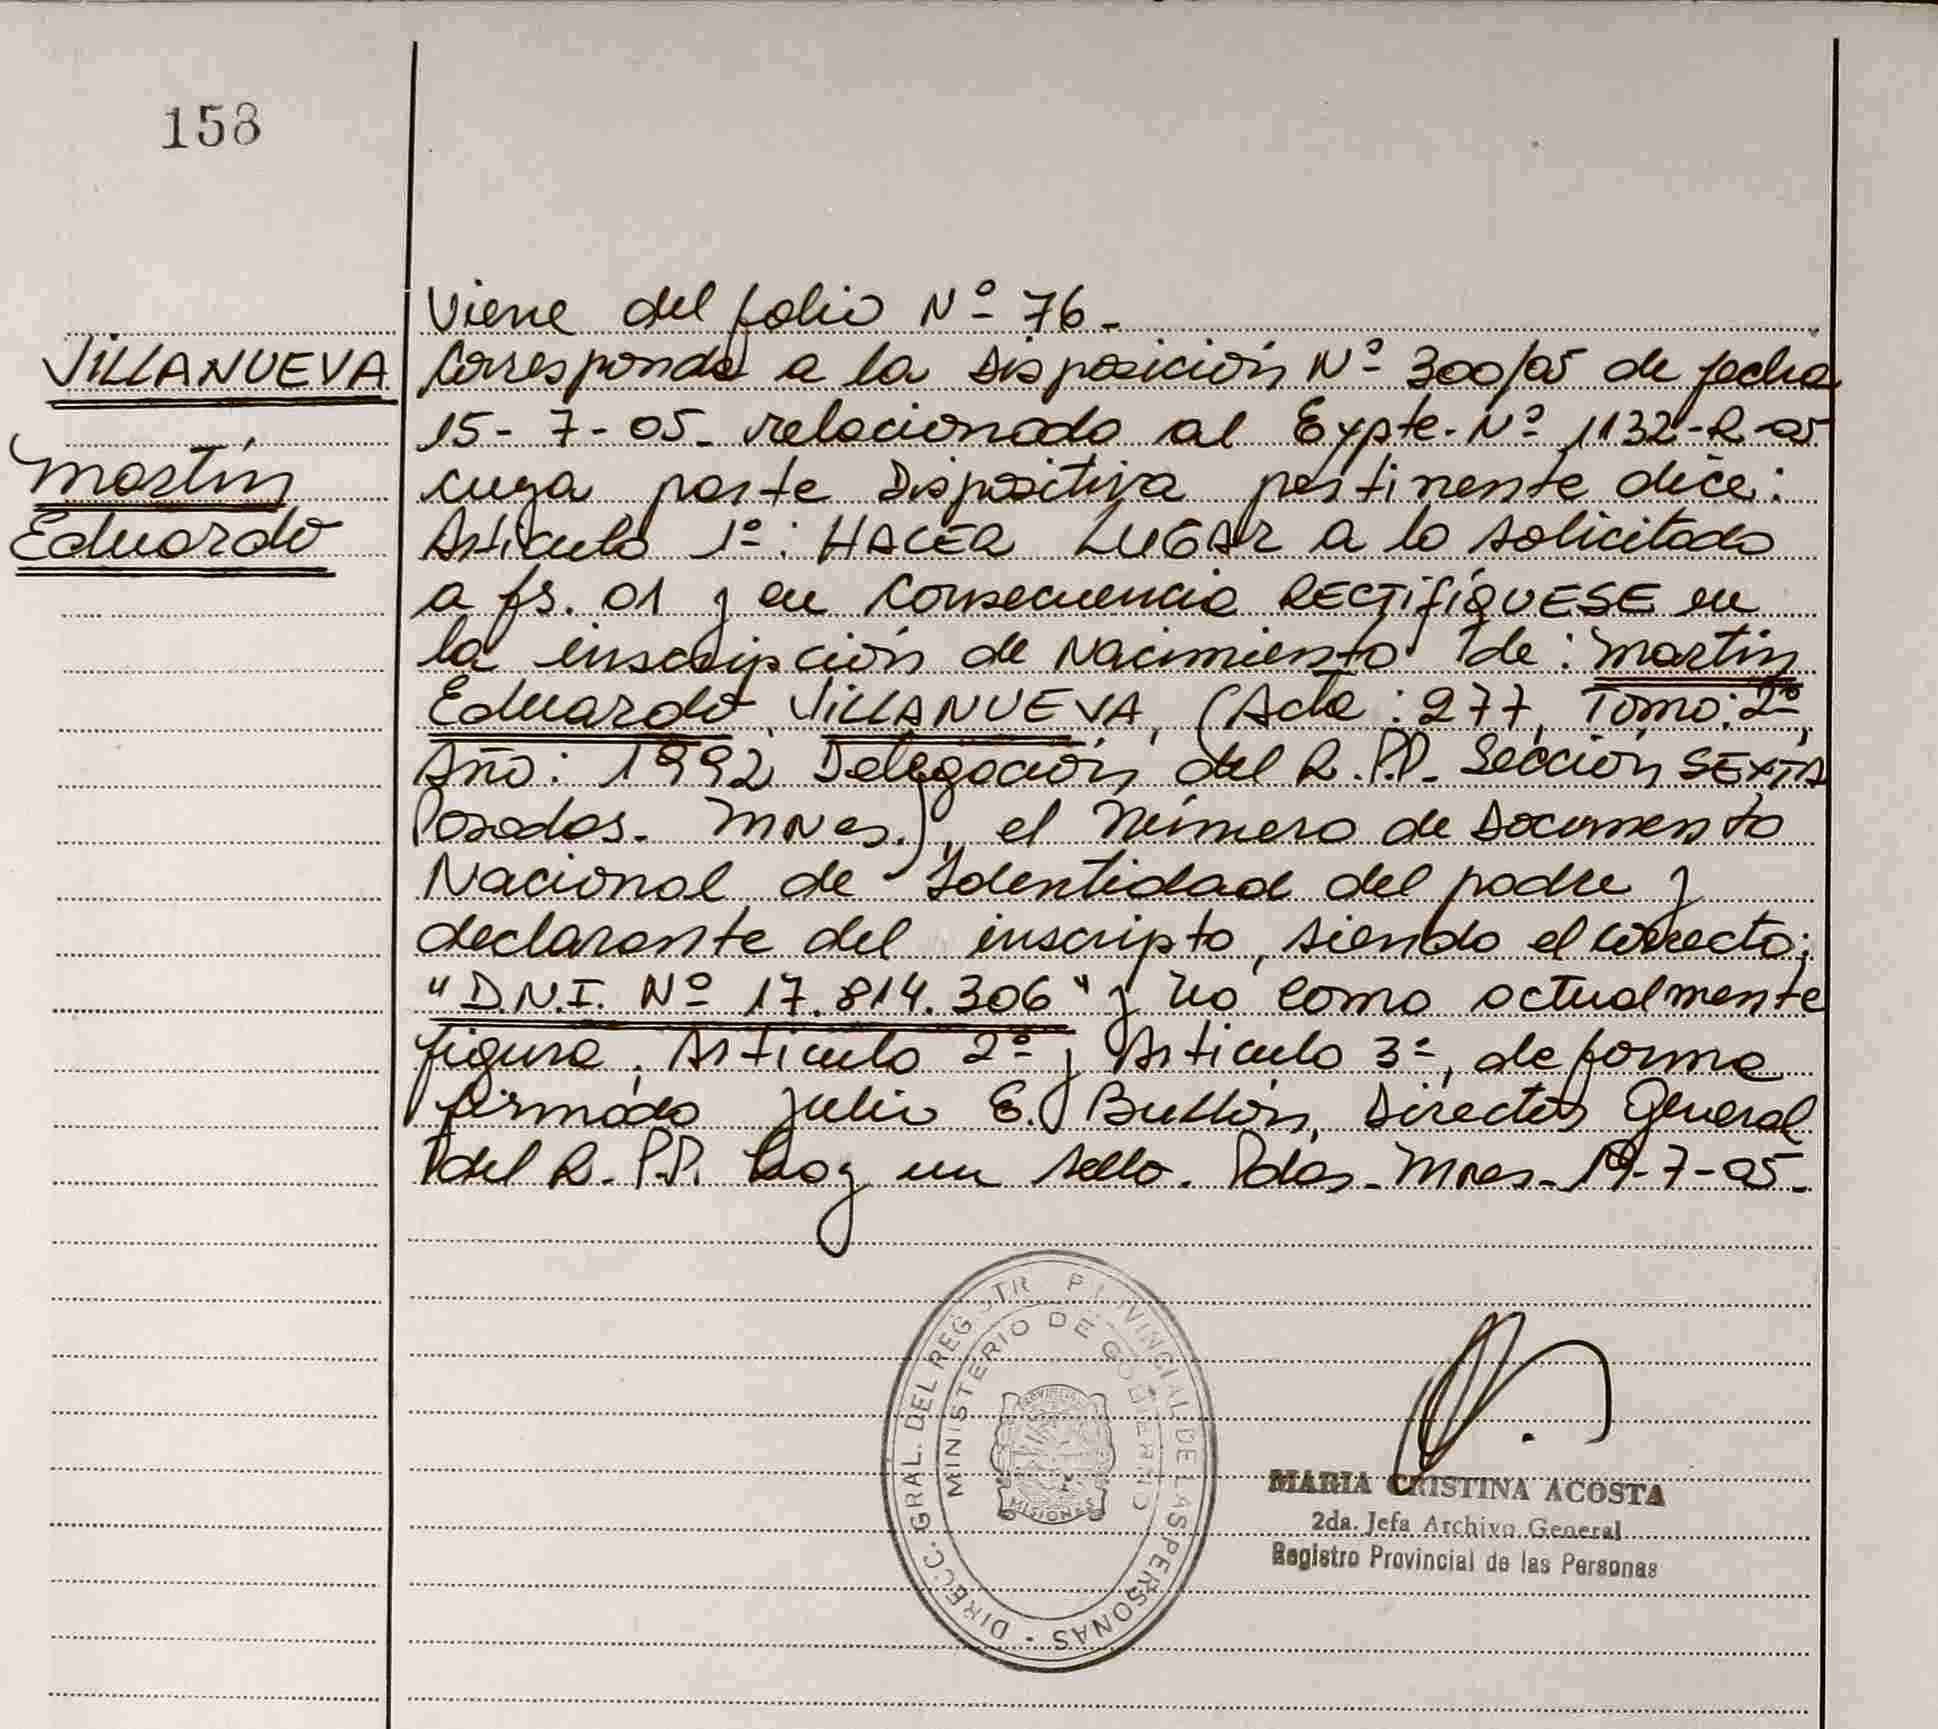 158
VILLANUEVA
Martín
Eduardo
Viene del folio Nº 76.
Corresponde a la Disposición Nº 300/05 de fecha
15-7-05. relacionado al Expte. Nº 1132-R-05
cuya parte Dispositiva pertinente dice:
Artículo 1º: HACER LUGAR a lo solicitado
a fs. 01 y en consecuencia RECTIFÍQUESE en
la inscripción de Nacimiento de: Martín
Eduardo VILLANUEVA, (Acta: 277, Tomo: 2º,
Año: 1992 Delegación del R.P.P. Sección SEXTA
Posadas. Mnes.), el Número de Documento
Nacional de Identidad del padre y
declarante del inscripto, siendo el correcto:
"D.N.I. Nº 17.814.306" y no como actualmente
figura. Artículo 2º y Artículo 3º, de forma
firmado Julio E. Bullón, Director General
del R.P.P. hay un sello. Pdas. Mnes. 19-7-05.
DIRECC. GRAL. DEL REGISTR PROVINCIAL DE LAS PERSONAS -
MINISTERIO DE GOBIERNO
PROVINCIA
MISIONES
MARIA CRISTINA ACOSTA
2da. Jefa Archivo General
Registro Provincial de las Personas